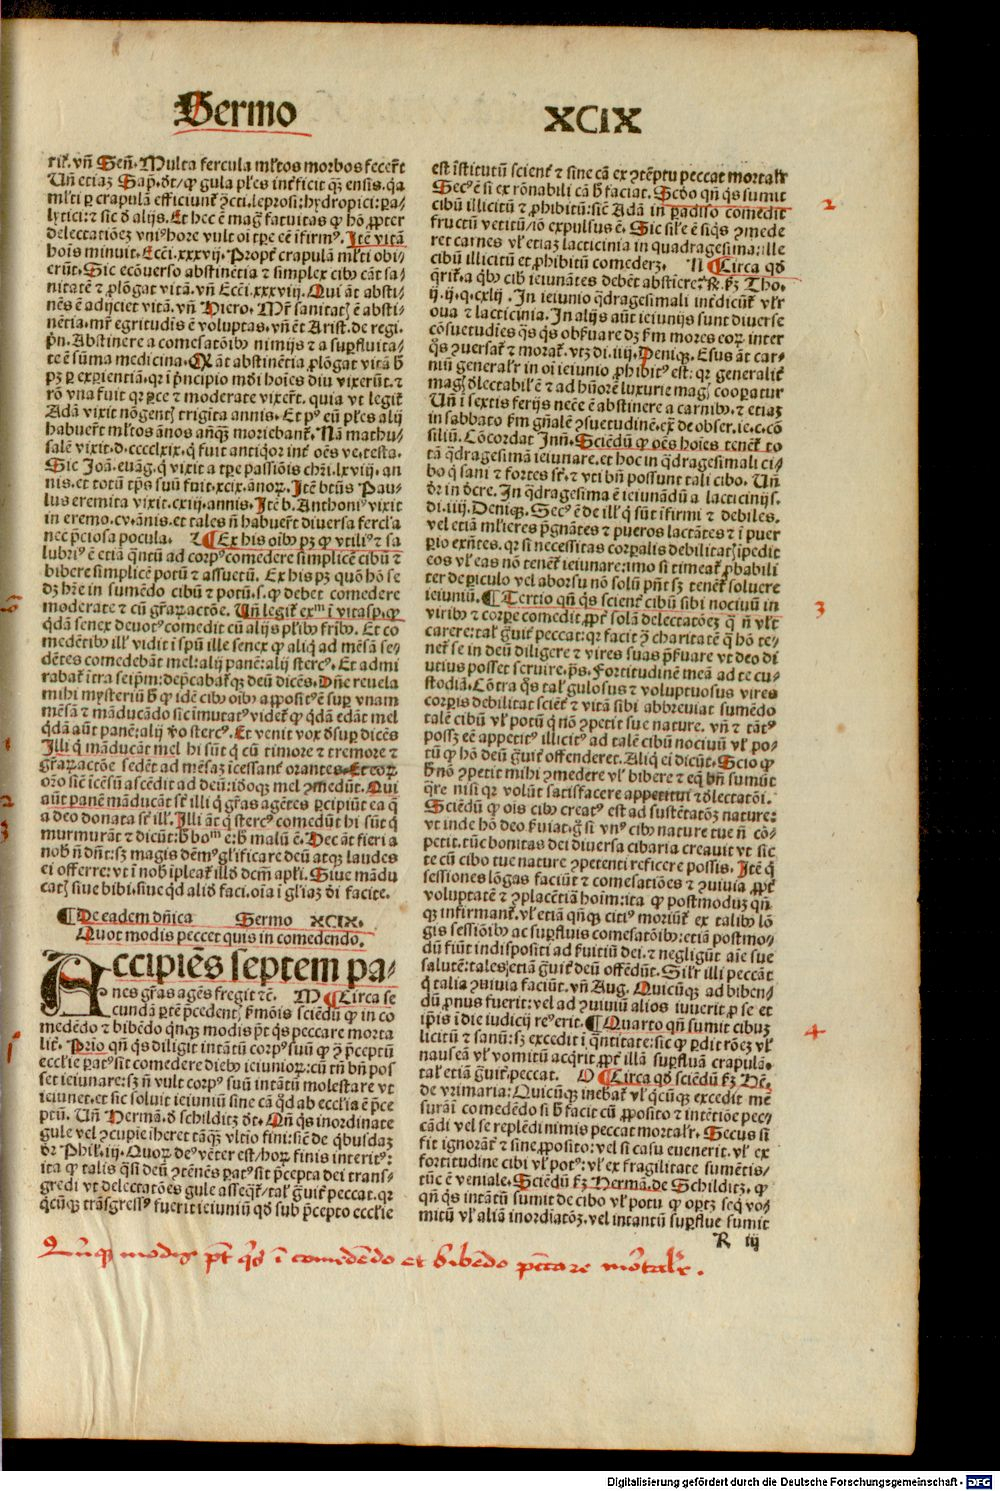 Sermo XCIX
rit̃. vñ Señ. Multa fercula ml̃tos morbos fecer̃t
Uñ etiaz Sap. dt̃/ ꝙ gula pl̃es inťficit qꝫ ensis. qa
ml̃ti ꝑ crapulã efficiunť ↄ̃cti. leprosi: hydropici: ꝑa-
lytici: ⁊ sic ď alijs. Et hec ē mag̃ fatuitas ꝙ hõ ꝓpter
delectatiõeꝫ vniꝰ hore vult oĩ tꝑe eē ĩfirmꝰ. Itē vitã
hoĩs minuit. Ecc̃i. xxxvij. Propť crapulã ml̃ti obi-
erũt. Sic ecõuerso abstinẽtia ⁊ simplex cibꝰ cãt sa-
nitatẽ ⁊ ꝓlõgat vitã. vñ Ecc̃i. xxxvij. Qui ãt absti-
nẽs ē adijciet vitã. vñ Hiero. Mr̃ sanitatꝭ ē absti-
nẽtia. mr̃ egritudĩs ē voluptas. vñ ẽt Arist̃. de regi.
pñ. Abstinere a comesatõibꝰ nimijs ⁊ a suꝑfluita-
te ē sũma medicina. Q ãt abstinẽtia ꝓlõgat vitã h̃
pꝫ ꝑ exꝑientiã. qr ĩ pñcipio mdi hoĩes diu vixerũt. ⁊
rõ vna fuit qr ꝑce ⁊ moderate vixerť. quia vt legiť
Adã vixit nõgentꝭ trigita annis. Et pꝰ eũ pl̃es alij
habuerť ml̃tos ãnos añqꝫ moriebanť. Nã mathu-
salẽ vixit. d. cccclxix. q̃ fuit antiqꝰor inť oẽs ve. testa.
Sic Joã. euãg. q̃ vixit a tꝑe passiõis chr̃i. lxviij. an
nis. et totũ tp̃s suũ fuit. xcix. anoꝝ. Itẽ btũs Pau-
lus eremita vixit. cxiij. annis. Itẽ b. Anthoniꝰ vixit
in eremo. cv. ãnis. et tales ñ habuerť diuersa fercl̃a
nec p̃ciosa pocula. L ¶ Ex his oĩbꝰ pꝫ ꝙ vtiliꝰ ⁊ sa
lubriꝰ ē etiã q̃ntũ ad corpꝰ comedere simplicẽ cibũ ⁊
bibere simplicẽ potũ ⁊ assuetũ. Ex his pꝫ quõ hõ se
dꝫ hr̃e in sumẽdo cibũ ⁊ potũ. s. ꝙ debet comedere
moderate ⁊ cũ gr̃aꝝactõe. Uñ legiť exᵐ ĩ vitasp. ꝙ
q̃dã senex deuotꝰ comedit cũ alijs pl̃ibꝰ fr̃ibꝰ. Et co
medẽtibꝰ ill̃ vidit ĩ spũ ille senex ꝙ aliq̃ ad mẽsã se-
dẽtes comedebãt mel: alij panẽ: alij stercꝰ. Et admi
rabať ĩtra seip̃m: dep̃cabatꝗꝫ deũ dicẽs. Dñe reuela
mihi mysteriũ h̃ ꝙ idẽ cibꝰ oĩbꝰ appositꝰ ē suꝑ vnam
mẽsã ⁊ mãducãdo sic ĩmutatꝰ videť ꝙ q̃dã edãt mel
q̃dã aũt panẽ: alij v̊o stercꝰ. Et venit vox dsuꝑ dicẽs
Illi q̃ mãducãt mel hi sũt q̃ cũ timore ⁊ tremore ⁊
gr̃aꝝactõe sedẽt ad mẽsaꝫ ĩcessanť orantes. Et eoꝝ
orõ sic ĩcẽsũ ascẽdit ad deũ: idoqꝫ mel ↄ̃medũt. Qui
aũt panẽ mãducãt sť illi q̃ gr̃as agẽtes ꝑcipiũt ea q̃
a deo donata sť ill̃. Illi ãt q̃ stercꝰ comedũt hi sũt q̃
murmurãt ⁊ dicũt: h̃ boᵐ ē: h̃ malũ ē. Hec ãt fieri a
nob̃ ñ dñt: sꝫ magis dẽmꝰ gl̃ificare deũ atqꝫ laudes
ei offerre: vt ĩ nob̃ ĩpleať illd̃ dcm̃ apl̃i. Siue mãdu
catꝭ siue bibi. siue q̃d aliđ faci. oĩa ĩ gl̃iaꝫ đi facite.
¶ De eadem dñica Sermo XCIX.
Quot modis peccet quis in comedendo.
Accipiẽs septem pa-
nes gr̃as agẽs fregit ⁊c̃. M ¶ Circa se
cundã ꝑtẽ p̃cedentꝭ ẝmõis sciẽdũ ꝙ in co
medẽdo ⁊ bibẽdo qnqꝫ modis p̃t q̃s peccare morta
lit̃. Prĩo qñ q̃s diligit intãtũ corpꝰ suũ ꝙ ↄ̃ p̃ceptũ
eccl̃ie ꝑatꝰ sit comedere diebꝰ ieiunioꝝ: cũ tñ bñ pos
set ieiunare: sꝫ ñ vult corpꝰ suũ intãtũ molestare vt
ieiunet. et sic soluit ieiuniũ sine cã q̃d ab eccl̃ia ē p̃ce
ptũ. Uñ Hermã. đ schilditz đt. Qñ q̃s inordinate
gule vel ↄ̃cupie iheret tãꝗꝫ vltĩo fini: sic̃ de q̃busdaꝫ
đr Phil̃. iij. Quoꝝ deꝰ vẽter est/ hoꝝ finis interitꝰ:
ita ꝙ talis q̃si deũ ↄ̃tẽnẽs ꝑatꝰ sit p̃cepta dei trans-
gredi vt delectatõẽs gule asseqť/ tal̃ g̃uiť peccat. qr
q̃cũqꝫ trãsgressꝰ fuerit ieiuniũ q̃d sub p̃cepto eccl̃ie
est ĩstitutũ scienť ⁊ sine cã ex ↄ̃tẽptu peccat mortalť
Secꝰ ē si ex rõnabili cã h̃ faciat. Scd̃o qñ q̃s sumit
cibũ illicitũ ⁊ ꝓhibitũ: sic̃ Adã in ꝑadiso comedit
fructũ vetitũ/ iõ expulsus ē. Sic sil̃e ē siq̃s ↄ̃mede
ret carnes vl̃ etiaꝫ lacticinia in quadragesima: ille
cibũ illicitũ et ꝓhibitũ comederꝫ. N ¶ Circa q̃d
q̃rit̃. a q̃bꝰ cibꝭ ieiunãtes debẽt abstiere: ꝶ. ẝꝫ Tho.
ij. ij. q. cxlij. In ieiunio q̃dragesimali inťdicũť vl̃r
oua ⁊ lacticinia. In alijs aũt ieiunijs sunt diuerse
cõsuetudĩes q̃s q̃s obẝuare dꝫ ẝm mores eoꝝ inter
q̃s ↄ̃uersať ⁊ morať. vtꝫ di. iiij. Deniqꝫ. Esus ãt car-
niũ generalť in oĩ ieiunio ꝓhibitꝰ est: qr generaliť
magꝭ đlectabil̃ ē ⁊ ad hũorẽ luxurie magꝭ cooꝑatur
Uñ ĩ sextis ferijs nec̃e ē abstinere a carnibꝰ. ⁊ etiaꝫ
in sabbato ẝm gñalẽ ↄ̃suetudinẽ. ex̃ de obser. ie. c. cõ
siliũ. Cõcordat Jnñ. Sciẽdũ ꝙ oẽs hoĩes tenẽť to
tã q̃dragesimã ieiunare. et hoc in q̃dragesimali ci-
bo q̃ sani ⁊ fortes sť. ⁊ vti bñ possunt tali cibo. Uñ
đr in đcre. In q̃dragesima ē ieiunãdũ a lacticinijs.
di. iiij. Deniqꝫ. Secꝰ ē de ill̃ q̃ sũt ĩfirmi ⁊ debiles.
vel etiã ml̃ieres p̃gnãtes ⁊ pueros lactãtes ⁊ ĩ puer
ꝑio exñtes. qr si necessitas corꝑalis debilitatꝭ ĩpedit
eos vl̃ eas nõ teneť ieiunare: imo si timeať ꝓbabili
ter de ꝑiculo vel aborsu nõ solũ pñt sꝫ teneť soluere
ieiuniũ. ¶ Tertio qñ q̃s scienť cibũ sibi nociuũ in
viribꝰ ⁊ corꝑe comedit ꝓpť solã delectatõeꝫ q̃ ñ vl̃t
carere: tal̃ g̃uiť peccat: qr facit ↄ̃ charitatẽ q̃ hõ te-
neť se in deũ diligere ⁊ vires suas p̃ẝuare vt deo di
utius posset seruire. p̃s. Fortitudinẽ meã ad te cu-
stodiã. Cõtra q̃s tal̃ gulosus ⁊ voluptuosus vires
corꝑis debilitat scienť ⁊ vitã sibi abbreuiat sumẽdo
talẽ cibũ vl̃ potũ q̃ nõ ↄ̃petit sue nature. vñ ⁊ tãtꝰ
possꝫ eē appetitꝰ illicitꝰ ad talẽ cibũ nociuũ vl̃ po-
tũ ꝙ hõ deũ g̃uiť offenderet. Aliq̃ ei dicũt. Scio ꝙ
h̃ nõ ↄ̃petit mihi ↄ̃medere vl̃ bibere ⁊ eq̃ bñ sumũt
q̃re nisi qr volũt satisfacere appetitui ⁊ đlectatõi.
Sciẽdũ ꝙ oĩs cibꝰ creatꝰ est ad sustẽtatõꝫ nature:
vt inde hõ deo ẝuiat. g̃ si vnꝰ cibꝰ nature tue ñ cõ-
petit. tũc bonitas dei diuersa cibaria creauit vt sic
te cũ cibo tue nature ↄ̃petenti reficere possis. Itẽ q̃
sessiones lõgas faciũt ⁊ comesatiões ⁊ ↄ̃uiuia ꝓpť
voluptatẽ ⁊ ↄ̃placẽtiã hoĩm: ita ꝙ postmoduꝫ qñ
qꝫ infirmanť. vl̃ etiã qñqꝫ citiꝰ moriũť ex talibꝰ lõ
gis sessiõibꝰ ac suꝑfluis comesatõibꝰ: etiã postmo-
dũ fiũt indispositi ad ẝuitiũ dei. ⁊ negligũt aĩe sue
salutẽ: tales etiã g̃uiť deũ offẽdũt. Sil̃r illi peccãt
q̃ talia ↄ̃uiuia faciũt. vñ Aug. Quicũqꝫ ad biben-
dũ ꝓnus fuerit: vel ad ↄ̃uiuiũ alios iuuerit ꝓ se et
ip̃is ĩ die iudicij reꝰ erit. ¶ Quarto qñ sumit cibuꝫ
licitũ ⁊ sanũ: sꝫ excedit ĩ q̃ntitate: sic ꝙ ꝑdit rõeꝫ vl̃
nauseã vl̃ vomitũ acq̃rit ꝓpť illã suꝑfluã crapulã.
tal̃ etiã g̃uiť peccat. O ¶ Circa q̃d sciẽdũ ẝꝫ Hẽ.
de vrimaria: Quicũqꝫ inebať vl̃ q̃cũqꝫ excedit mẽ
surã ĩ comedẽdo si h̃ facit cũ ꝓposito ⁊ intẽtiõe pec-
cãdi vel se replẽdi nimis peccat mortalť. Secus si
fit ignorãť ⁊ sine ꝓposito: vel si casu euenerit. vl̃ ex
fortitudine cibi vl̃ potꝰ: vl̃ ex fragilitate sumẽtis/
tũc ē veniale. Sciẽdũ ẝꝫ Hermã. de Schilditz. ꝙ
qñ q̃s intãtũ sumit de cibo vl̃ potu ꝙ oꝑtꝫ seq̃ vo-
mitũ vl̃ aliã inordĩatõꝫ. vel intantũ suꝑflue sumit
R iij
2
3
4
1
2
3
1
Quinqꝫ modis p̃t q̃s ĩ comedẽdo et bibẽdo peccare mortalr̃.
Digitalisierung gefördert durch die Deutsche Forschungsgemeinschaft - DFG